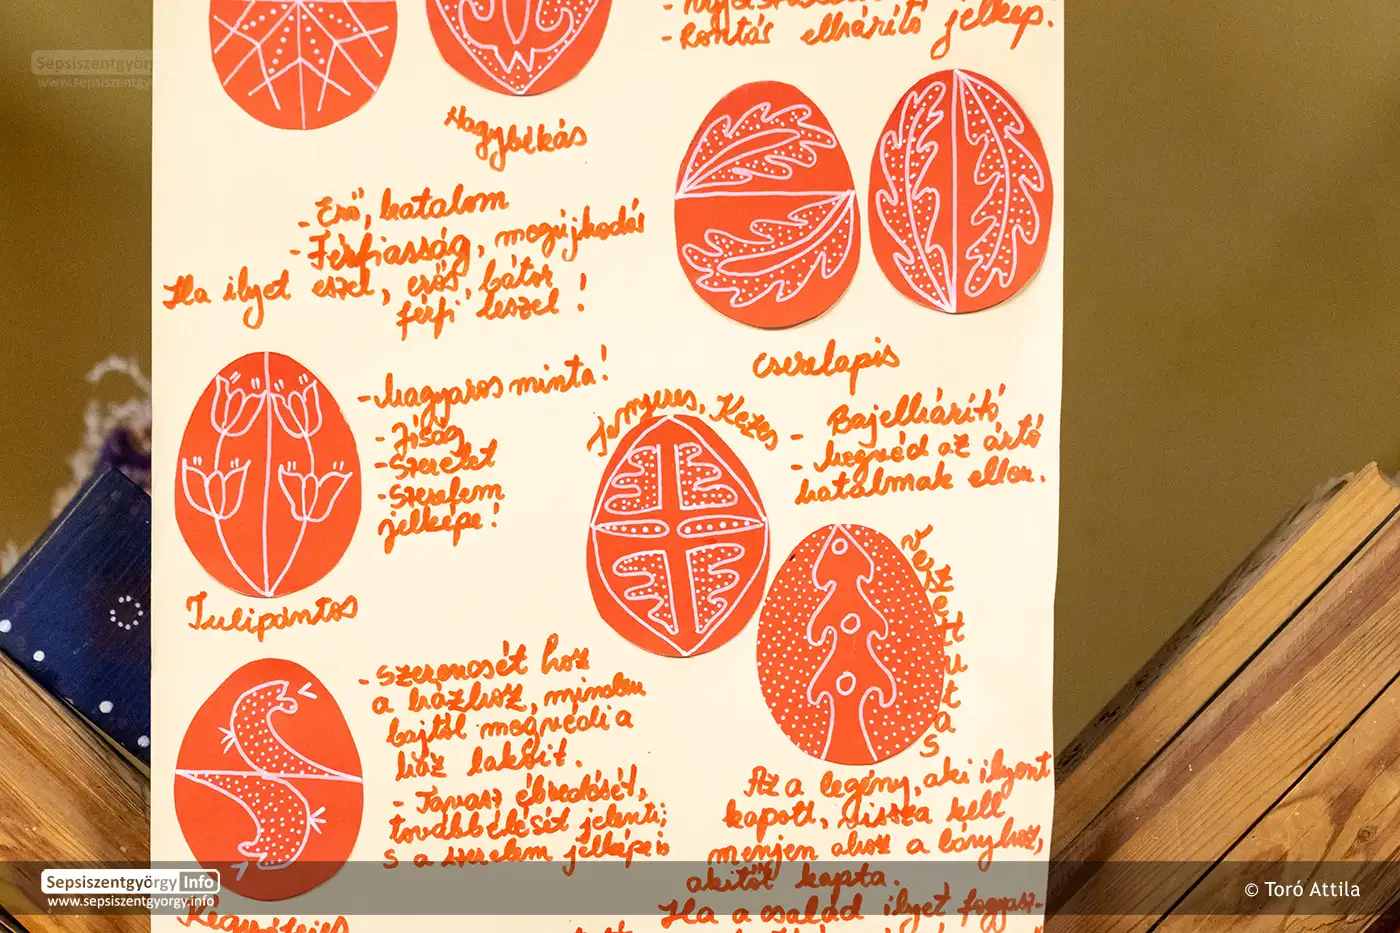 Rontás elhárító jelkép.
Nagybékás
- Erő, hatalom
- Férfiasság, megújhodás
Ha ilyet eszel, erős, bátor
férfi leszel!
Cserelapis
- Bajelhárító
- Megvéd az ártó
hatalmak ellen.
- Magyaros minta!
- Jóság
- Szeretet
- Szerelem
jelképe!
Tulipántos
Tenyeres, Kezes
veszettutas
- Szerencsét hoz
a házhoz, minden
bajtól megvédi a
ház lakóit.
- Tavasz ébredését,
továbbélését jelenti;
S a szerelem jelképe is
Az a legény, aki ilyent
kapott, vissza kell
menjen ahoz a lányhoz,
akitől kapta.
Ha a család ilyet fogyasz-
Sepsiszentgyörgy Info
www.sepsiszentgyorgy.info
© Toró Attila